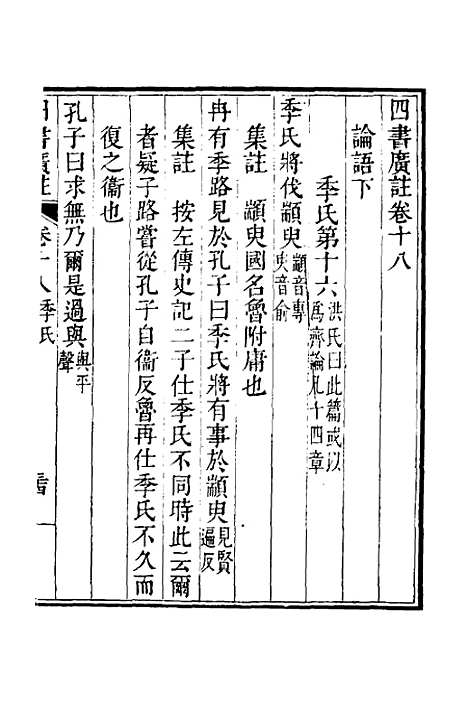 四書廣註卷十八
論語下
季氏第十六洪氏曰此篇或以為齊論凡十四章
季氏將伐顓臾顓音專臾音俞
集註　顓臾國名魯附庸也
冉有季路見於孔子曰季氏將有事於顓臾見賢遍反
集註　按左傳史記二子仕季氏不同時此云爾
者疑子路嘗從孔子自衞反魯再仕季氏不久而
復之衞也
孔子曰求無乃爾是過與與平聲
四書廣註　卷十八季氏　一